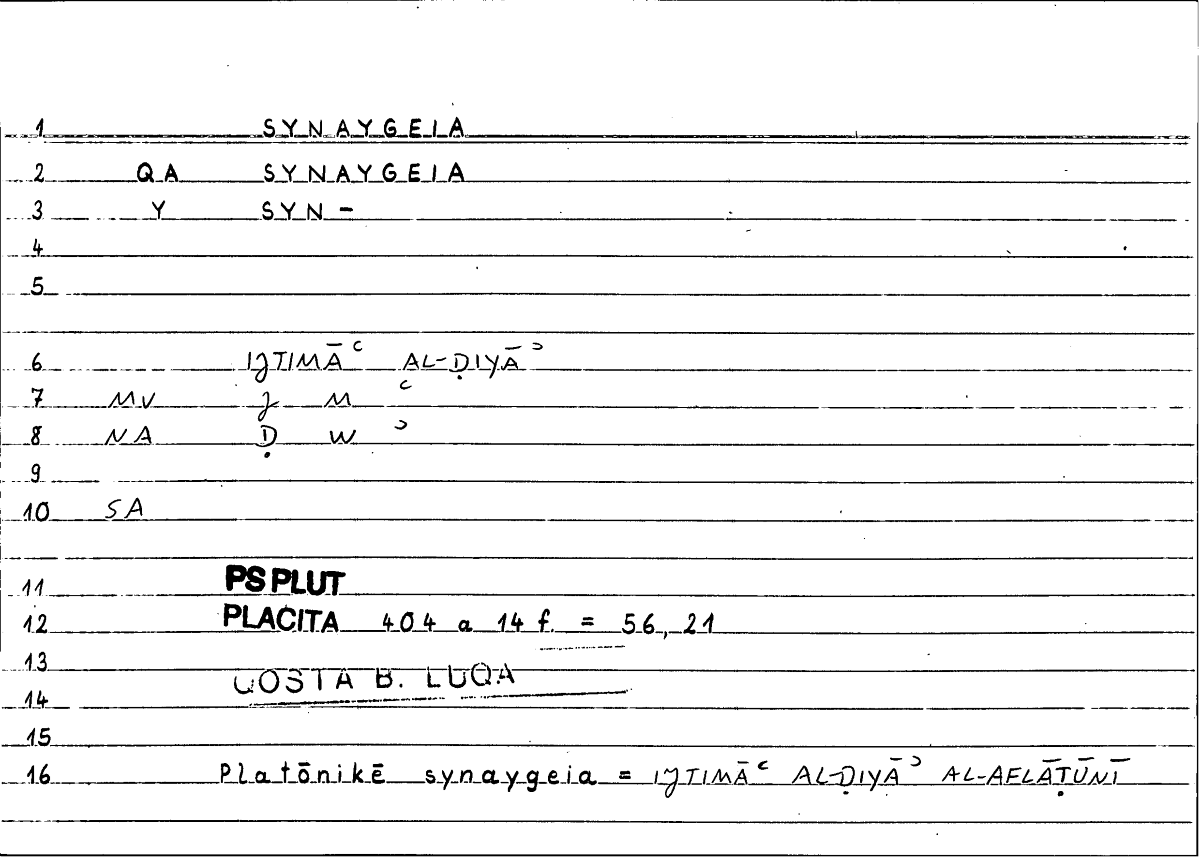 1 SYNAYGEIA
2 QA SYNAYGEIA
3 Y SYN-
4
5
6 IJTIMĀʿ AL-ḌIYĀʾ
7 MV J M ʿ
8 NA Ḍ W ʾ
9
10 SA
11 PS PLUT
12 PLACITA 404 a 14 f. = 56, 21
13 QOSTA B. LUQA
14
15
16 Platōnikē synaygeia = IJTIMĀʿ AL-ḌIYĀʾ AL-AFLĀṬŪNĪ